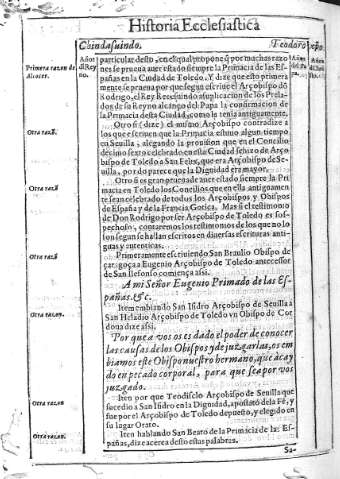 Historia Ecclesiastica
Chindasuindo.
Teodoro
Años
del Reyno.
Primera razon de
Alcocer.
particular desto, en el qual propone por muchas razo-
nes se prueua auer estado siempre la Primacia de las Es-
pañas en la Ciudad de Toledo. Y dize que esto primera-
mente se prueua por que segun escriue el Arçobispo dõ
Rodrigo, el Rey Recesuindo a suplicacion de los Prela-
dos de su Reyno alcançò del Papa la confirmacion de
la Primacia desta Ciudad, como la tenia antiguamente.
Otra razõ
Otro si (dize) el mismo Arçobispo contradize a
los que escriuen que la Primacia estuuo algun tiempo
en Seuilla, alegando la prouision que en el Concilio
decimo sexto celebrado en esta Ciudad se hizo de Arço
bispo de Toledo a San Felix, que era Arçobispo de Se-
uilla, por do parece que la Dignidad era mayor.
Otra razõ
Otro si es gran prueua de auer estado siempre la Pri
macia en Toledo los Concilios que en ella antiguamen
te se an celebrado de todos los Arçobispos y Obispos
de España y de la Francia Gotica. Mas si el testimonio
de Don Rodrigo por ser Arçobispo de Toledo es sos-
pechoso, contaremos los testimonios de los que no lo
son segun se hallan escritos en diuersas escrituras anti-
guas y autenticas.
Otra razõ
Primeramente escriuiendo San Braulio Obispo de
çaragoça a Eugenio Arçobispo de Toledo antecessor
de San Ilefonso comiença assi.
A mi Señor Eugenio Primado de las Es-
pañas. &c.
Otra razon.
Item embiando San Isidro Arçobispo de Seuilla a
San Heladio Arçobispo de Toledo vn Obispo de Cor
doua dize assi.
Por que a vos os es dado el poder de conocer
las causas de los Obispos y de juzgarlas, os em
biamos este Obispo nuestro hermano, que à cay
do en pecado corporal, para que sea por vos
juzgado.
Otra razon
Iten por que Teodisclo Arçobispo de Seuilla que
sucedio a San Isidro en la Dignidad, apostatò de la Fè, y
fue por el Arçobispo de Toledo depuesto, y elegido en
su lugar Orato.
Otra razon.
Iten hablando San Beato de la Primacia de las Es-
pañas, dize acerca desto estas palabras.
Sa-